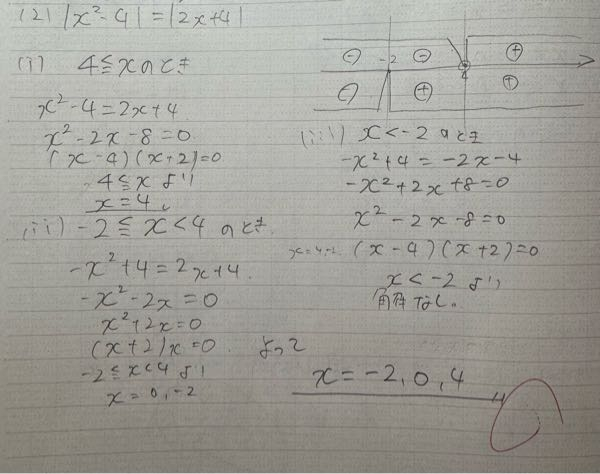 (2) |x²-4| = |2x+4|
(i) 4≦xのとき
x²-4=2x+4
x²-2x-8=0
(x-4)(x+2)=0
4≦xより
x=4
(ii) -2≦x<4のとき
-x²+4=2x+4
-x²-2x=0
x²+2x=0
(x+2)x=0
-2≦x<4より
x=0,-2
⊖ -2 ⊖ ⊕
⊖ ⊕ 4 ⊕
(iii) x<-2のとき
-x²+4=-2x-4
-x²+2x+8=0
x²-2x-8=0
x=4,-2 (x-4)(x+2)=0
x<-2より
解なし。
よって
x=-2,0,4